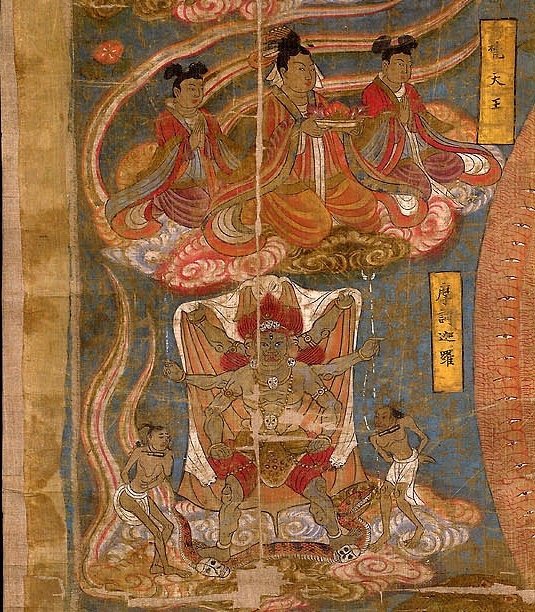 天王
摩訶迦羅